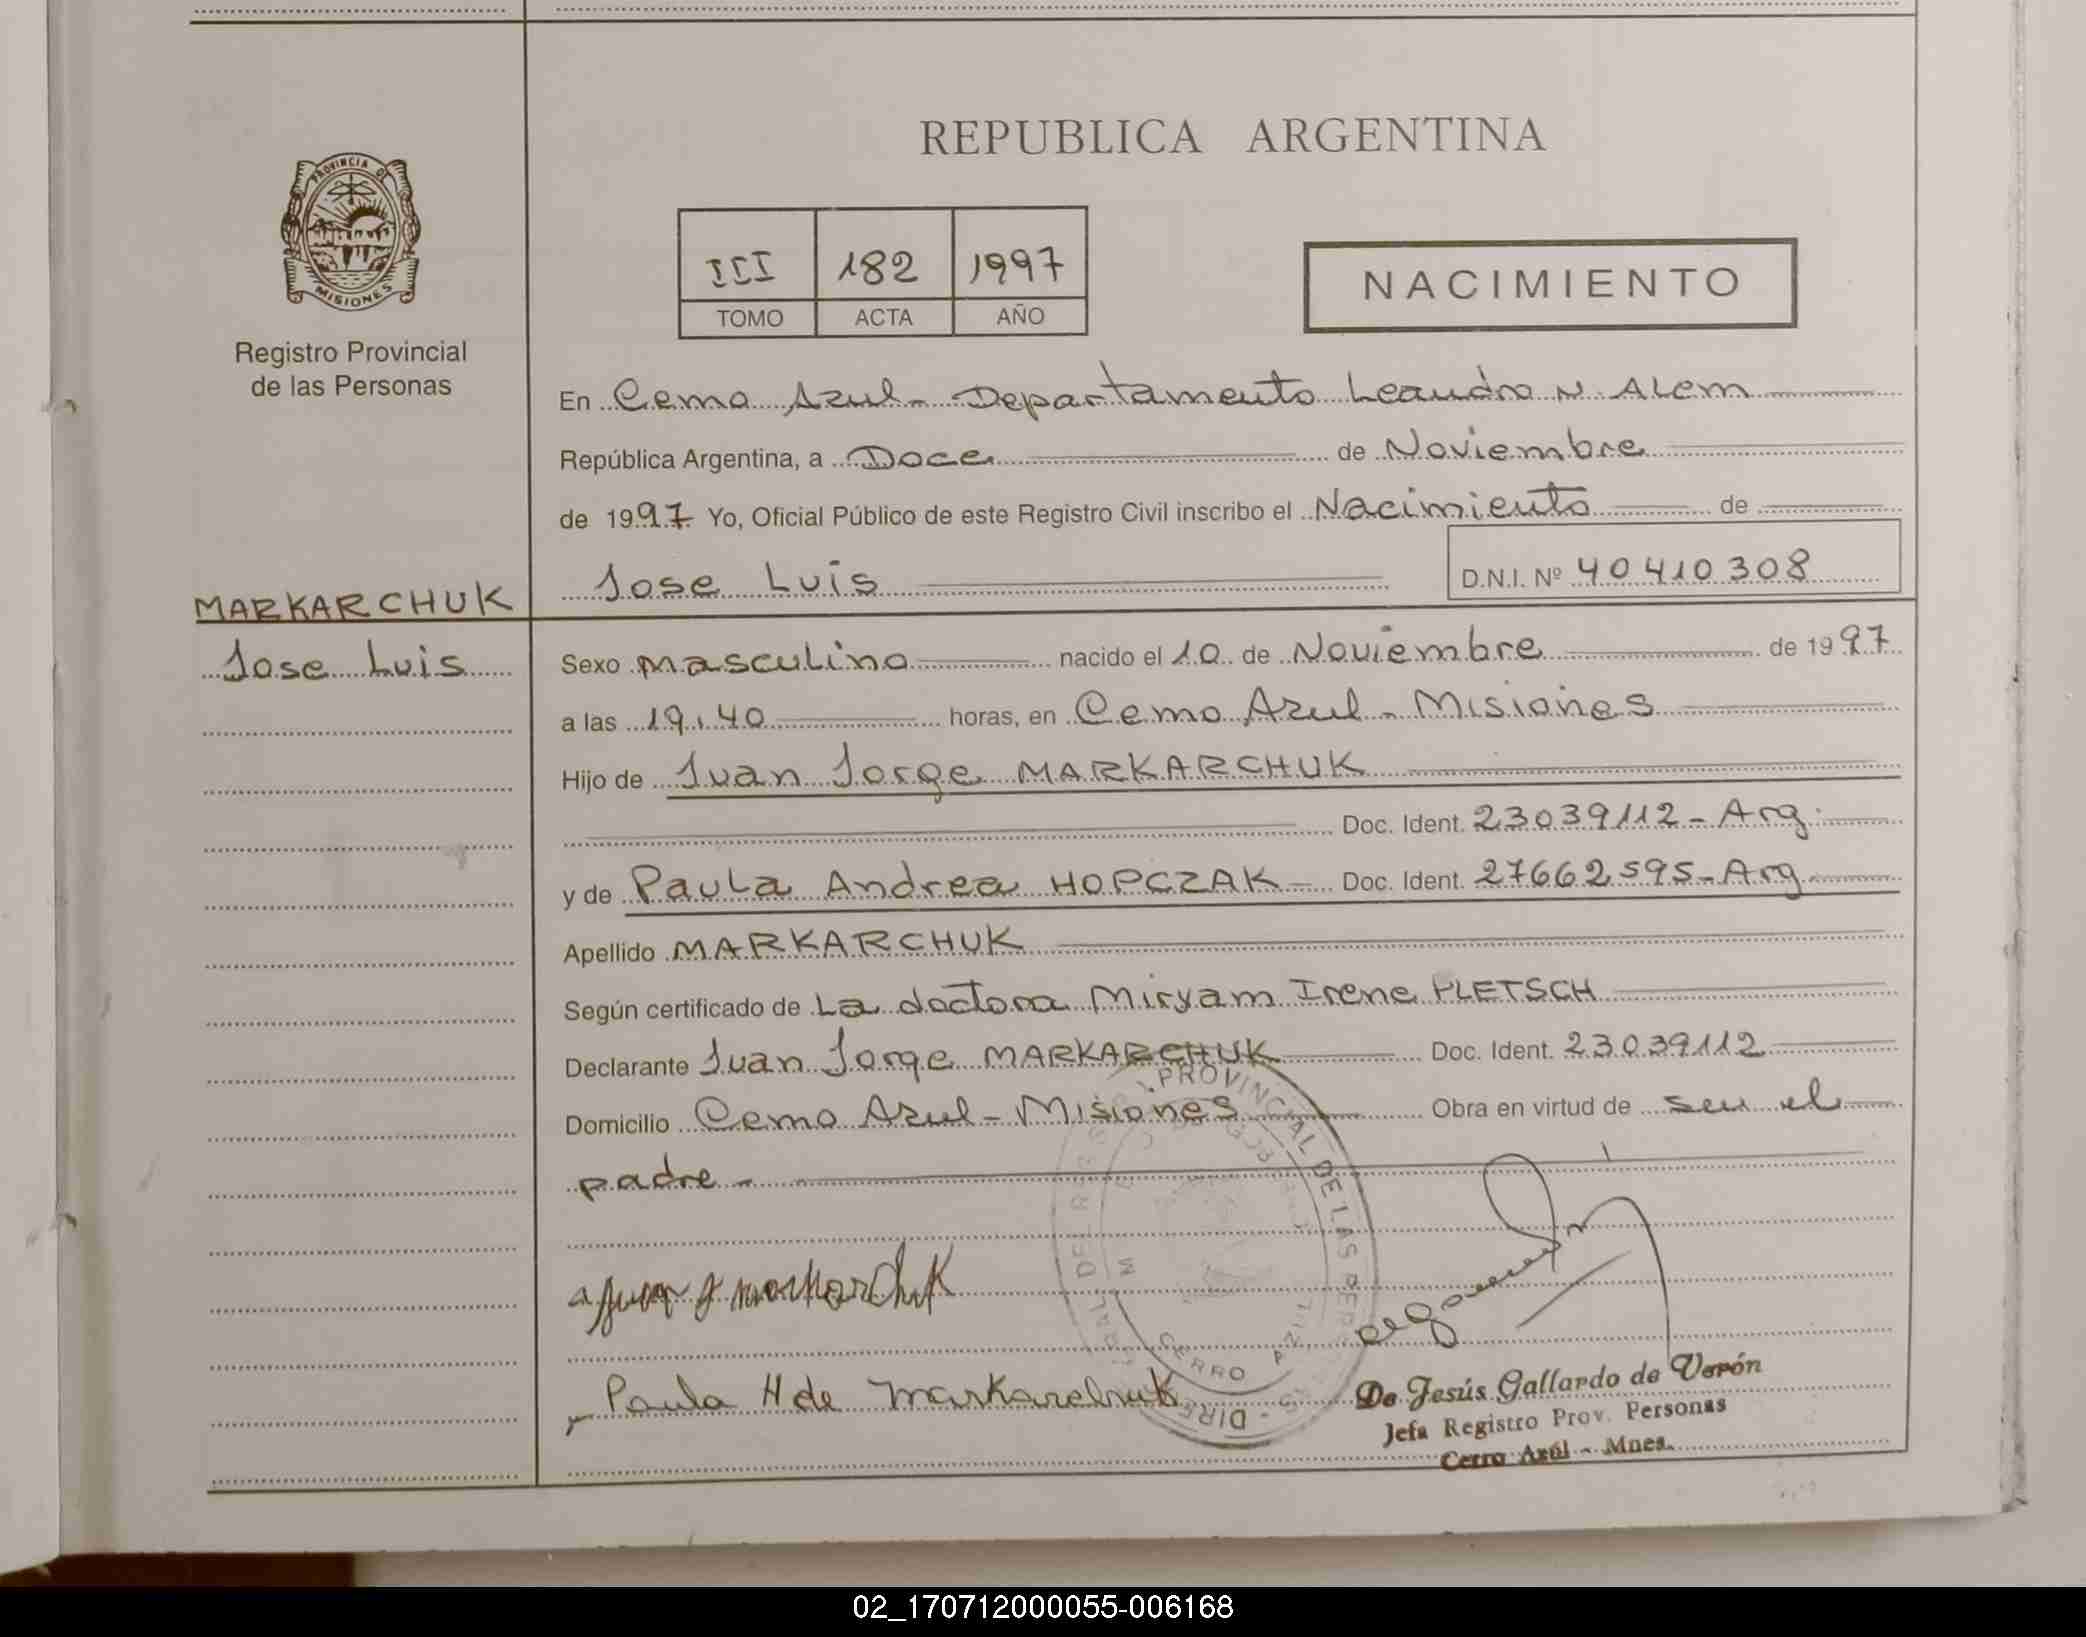 REPUBLICA ARGENTINA
PROVINCIA DE
MISIONES
Registro Provincial
de las Personas
III 182 1997
TOMO ACTA AÑO
NACIMIENTO
En Cerro Azul - Departamento Leandro N. Alem
República Argentina, a Doce de Noviembre
de 1997 Yo, Oficial Público de este Registro Civil inscribo el Nacimiento de
Jose Luis D.N.I. Nº 40410308
MARKARCHUK
Jose Luis
Sexo masculino nacido el 10 de Noviembre de 1997
a las 19,40 horas, en Cerro Azul - Misiones
Hijo de Juan Jorge MARKARCHUK
Doc. Ident. 23039112 - Arg.
y de Paula Andrea HOPCZAK - Doc. Ident. 27662595 - Arg.
Apellido MARKARCHUK
Según certificado de La doctora Miryam Irene PLETSCH
Declarante Juan Jorge MARKARCHUK Doc. Ident. 23039112
Domicilio Cerro Azul - Misiones Obra en virtud de ser el
padre -
PROVINCIAL DE LAS
CERRO
Juan J markarchuk
Paula H de Markarchuk
De Jesús Gallardo de Verón
Jefa Registro Prov. Personas
Cerro Azul - Mnes.
02_170712000055-006168